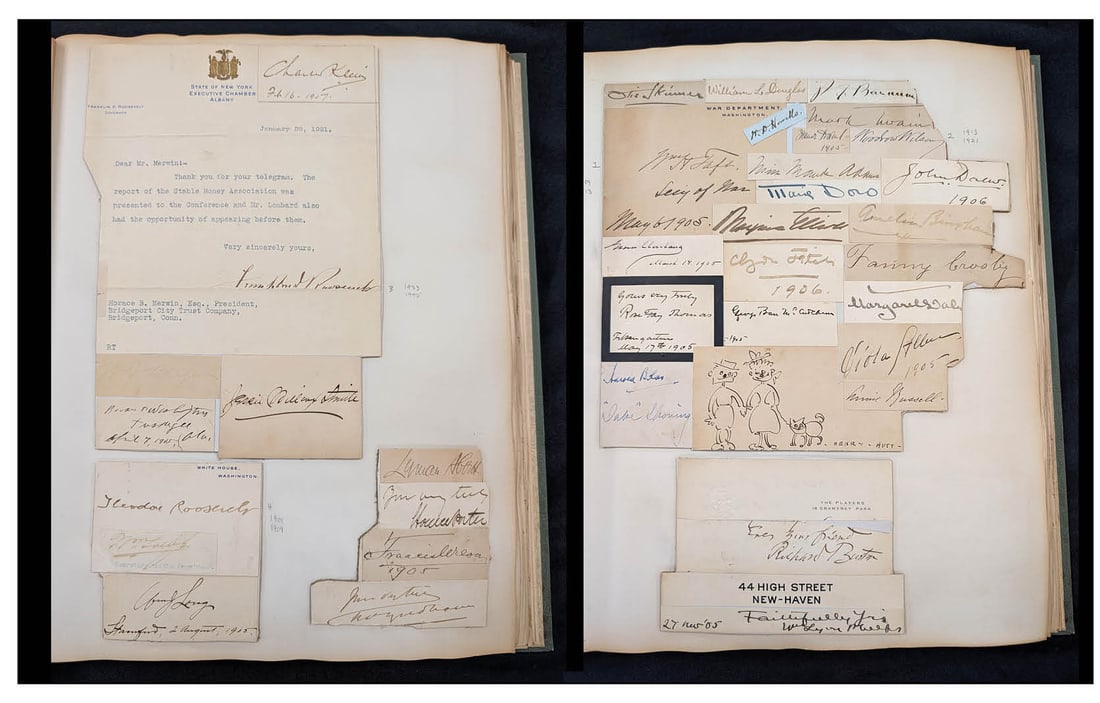 STATE OF NEW YORK
EXECUTIVE CHAMBER
ALBANY
FRANKLIN D. ROOSEVELT
GOVERNOR
Charles Klein
Feb 16 - 1907.
January 28, 1931.
Dear Mr. Merwin:-
Thank you for your telegram. The
report of the Stable Money Association was
presented to the Conference and Mr. Lombard also
had the opportunity of appearing before them.
Very sincerely yours,
Franklin D Roosevelt
3 1933
1945
Horace B. Merwin, Esq., President,
Bridgeport City Trust Company,
Bridgeport, Conn.
RT
Tuskegee
April 7, 1905 Ala.
Jessie Willcox Smith
WHITE HOUSE,
WASHINGTON.
Theodore Roosevelt
4 1901
1909
Long
Stamford, 2 August, 1905
Lyman Abbott
Your very truly
Horace Porter
Francis Wilson
1905
Otis Skinner
William L. Douglas
P. T. Barnum
WAR DEPARTMENT,
WASHINGTON.
W. D. Howells.
Mark Twain
1905
Woodrow Wilson
2 1913
1921
1
Wm H Taft
Secy of War
May 6 1905
Miss Maude Adams
Marie Doro
John Drew
1906
Maxine Elliott
Amelia Bingham
March 14, 1905
Clyde Fitch
1906.
Fanny Crosby
Yours very truly
Rose Fay Thomas
Felsengarten
May 17th 1905
George Barr McCutcheon
1905
Margaret Dale
Viola Allen
1905
Annie Russell.
"Dave"
- HENRY - HUTT -
THE PLAYERS
16 GRAMERCY PARK
Ever your friend
Richard Burton
44 HIGH STREET
NEW-HAVEN
27 Nov '05
Faithfully Yrs
Wm Lyon Phelps